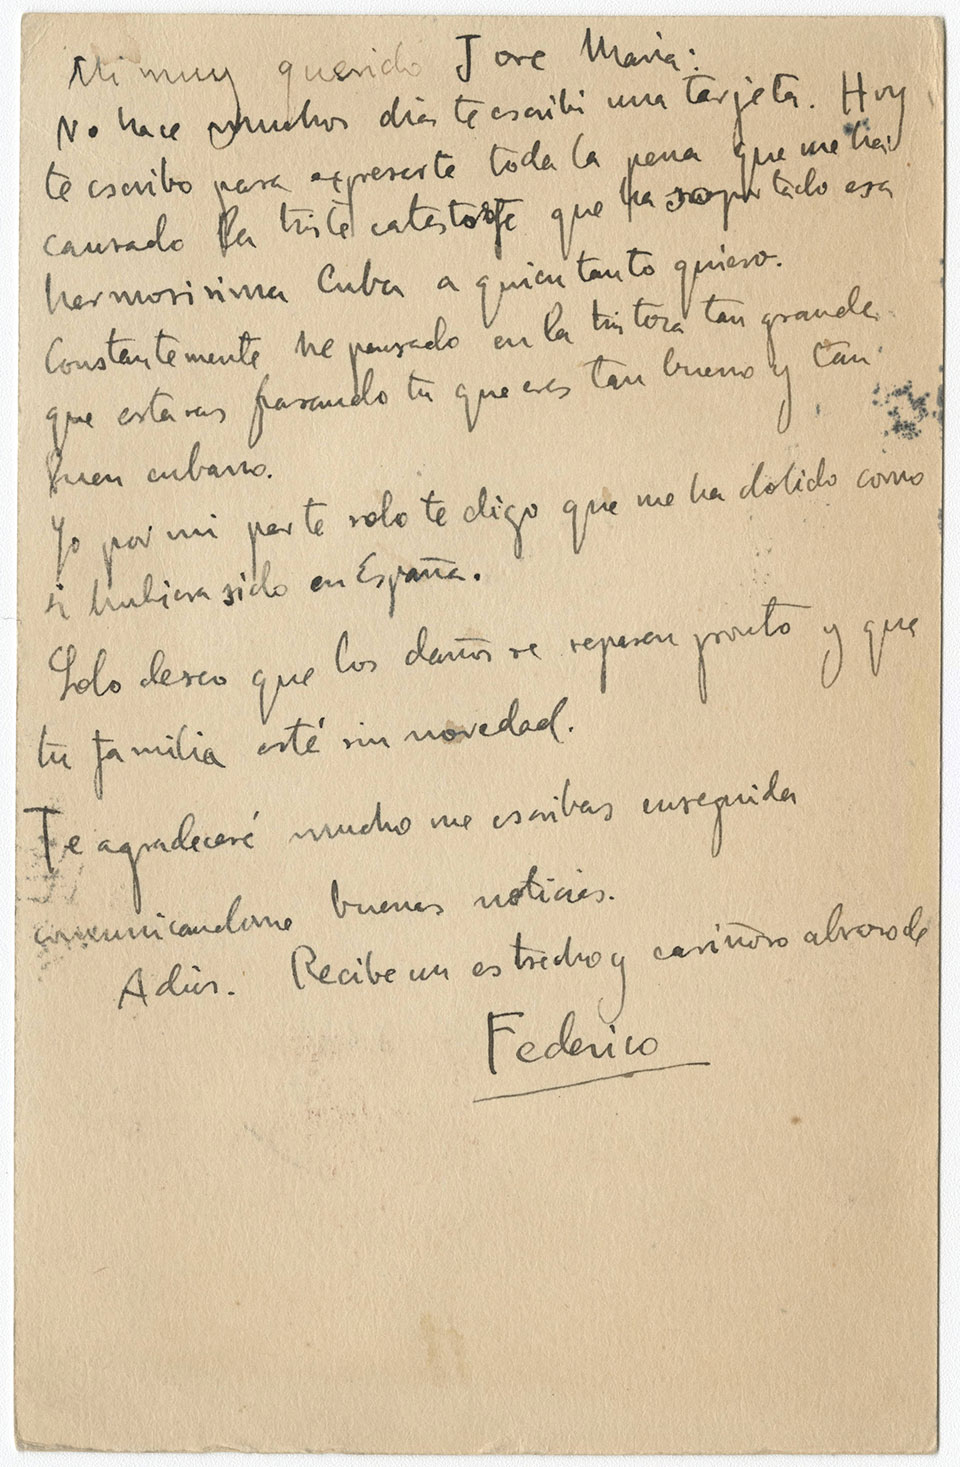 Mi muy querido Jose Maria:
No hace muchos dias te escribi una tarjeta. Hoy
te escribo para expresarte toda la pena que me ha
causado la triste catastofe que ha soportado esa
hermosisima Cuba a quien tanto quiero.
Constantemente he pensado en la tristeza tan grande
que estaras pasando tu que eres tan bueno y tan
buen cubano.
Yo por mi parte solo te digo que me ha dolido como
si hubiera sido en España.
Solo deseo que los daños se reparen pronto y que
tu familia esté sin novedad.
Te agradeceré mucho me escribas enseguida
comunicandome buenas noticias.
Adios. Recibe un estrecho y cariñoso abrazo de
Federico